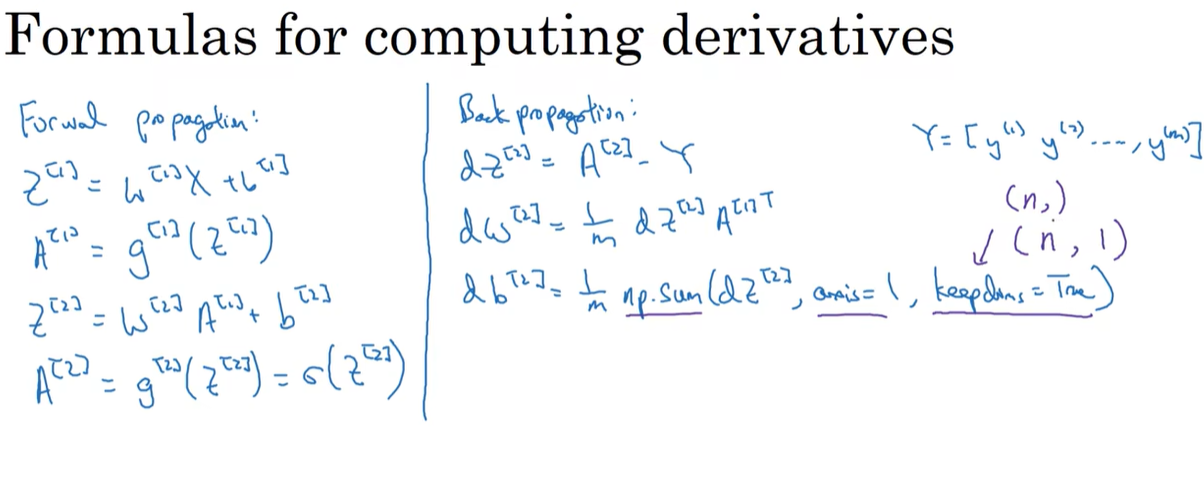 Formulas for computing derivatives
Forwal propagation:
Z^[1] = W^[1]X + b^[1]
A^[1] = g^[1](Z^[1])
Z^[2] = W^[2] A^[1] + b^[2]
A^[2] = g^[2](Z^[2]) = σ(Z^[2])
Back propagation:
dZ^[2] = A^[2] - Y
dW^[2] = 1/m dZ^[2] A^[1]T
db^[2] = 1/m np.sum(dZ^[2], axis=1, keepdims=True)
Y = [y^(1) y^(2) ---, y^(m)]
(n,)
(n, 1)